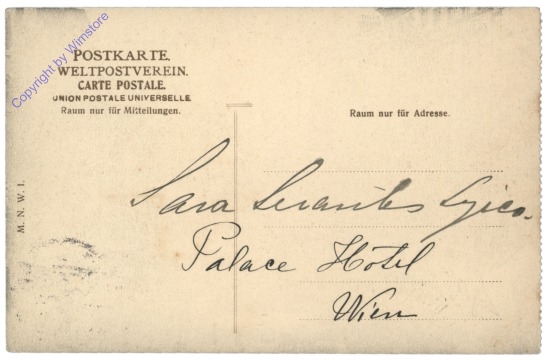 Copyright by Wimstore
POSTKARTE.
WELTPOSTVEREIN.
CARTE POSTALE.
UNION POSTALE UNIVERSELLE
Raum nur für Mitteilungen.
Raum nur für Adresse.
M. N. W. I.
Sara
Palace Hôtel
Wien